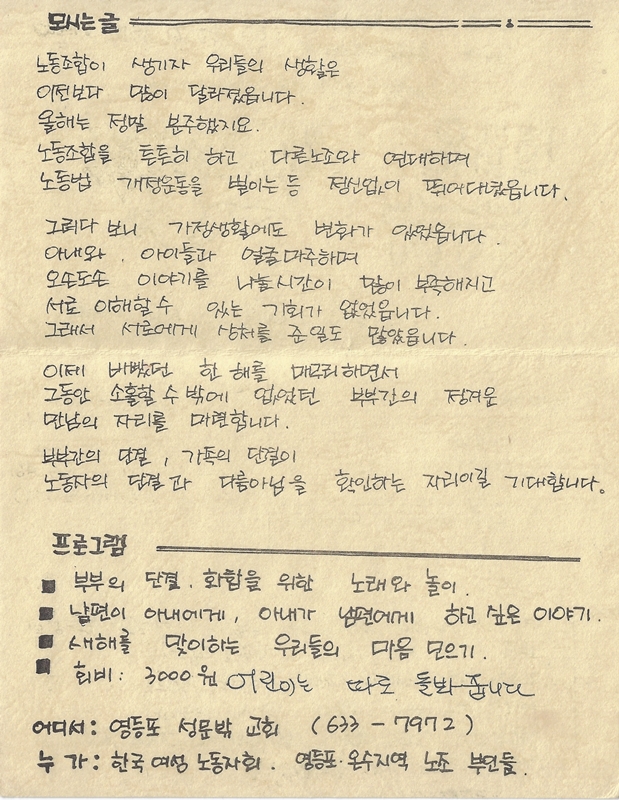 모시는 글
노동조합이 생기자 우리들의 생활은
이전보다 많이 달라졌읍니다.
올해는 정말 분주했지요.
노동조합을 튼튼히 하고 다른노조와 연대하며
노동법 개정운동을 벌이는 등 정신없이 뛰어다녔읍니다.
그러다 보니 가정생활에도 변화가 있었읍니다.
아내와, 아이들과 얼굴 마주하며
오손도손 이야기를 나눌시간이 많이 부족해지고
서로 이해할 수 있는 기회가 없었읍니다.
그래서 서로에게 상처를 준 일도 많았읍니다.
이제 바빴던 한 해를 마무리 하면서
그동안 소홀할 수 밖에 없었던 부부간의 정겨운
만남의 자리를 마련합니다.
부부간의 단결, 가족의 단결이
노동자의 단결과 다름아님을 확인하는 자리이길 기대합니다.
프로그램
■ 부부의 단결. 화합을 위한 노래와 놀이.
■ 남편이 아내에게, 아내가 남편에게 하고 싶은 이야기.
■ 새해를 맞이하는 우리들의 마음 모으기.
■ 회비: 3000원 어린이는 따로 돌봐줍니다
어디서: 영등포 성문밖 교회 (633-7972)
누 가: 한국 여성 노동자회. 영등포·온수지역 노조 부인들.